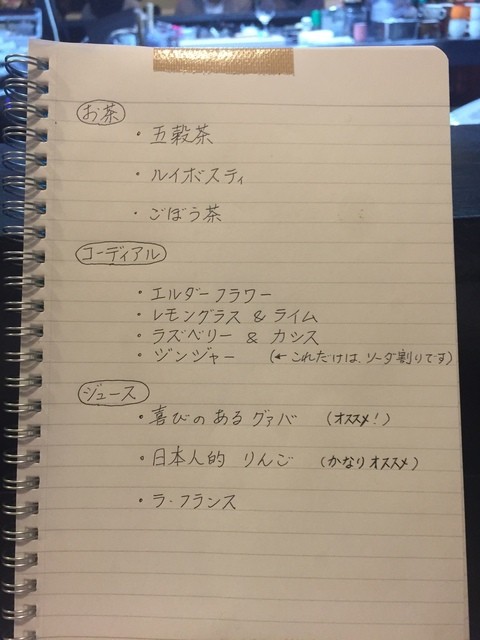 お茶
・五穀茶
・ルイボスティ
・ごぼう茶
コーディアル
・エルダーフラワー
・レモングラス & ライム
・ラズベリー & カシス
・ジンジャー (←これだけは、ソーダ割りです)
ジュース
・喜びのあるグァバ (オススメ!)
・日本人的 りんご (かなりオススメ)
・ラ・フランス